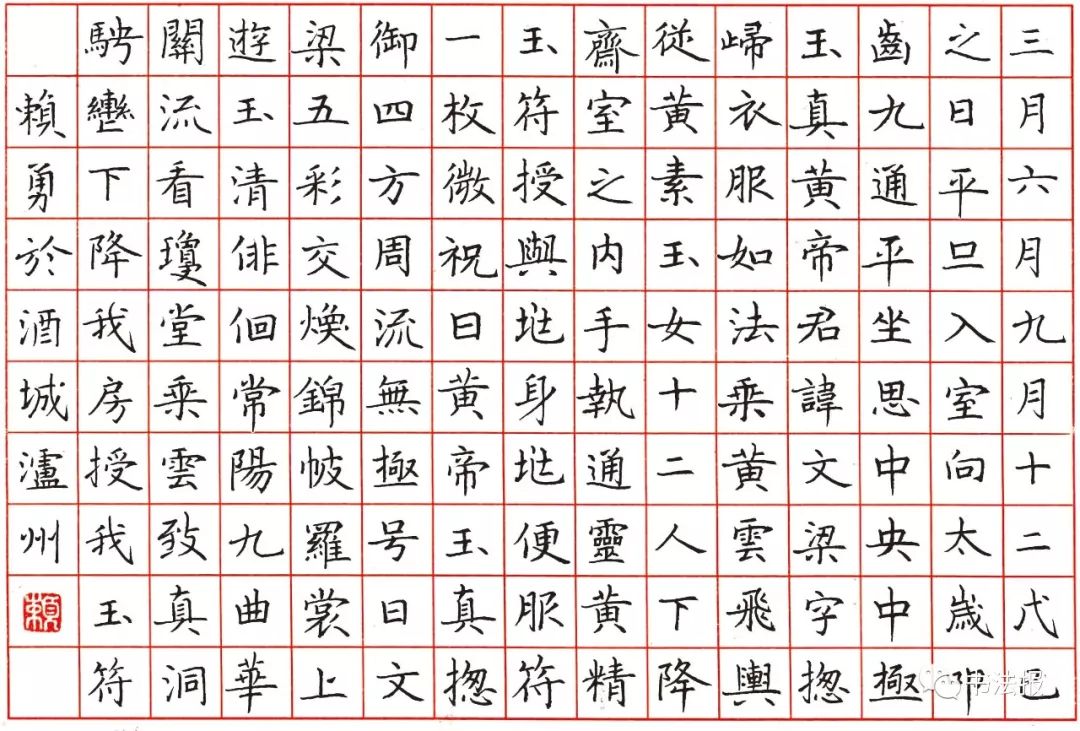 三月六月九月十二戊己
之日平旦入室向太歲叩
齒九通平坐思中央中極
玉真黃帝君諱文梁字揔
歸衣服如法乘黃雲飛輿
從黃素玉女十二人下降
齋室之內手執通靈黃精
玉符授與垗身垗便服符
一枚微祝曰黃帝玉真揔
御四方周流無極号曰文
梁五彩交煥錦帔羅裳上
遊玉清俳佪常陽九曲華
關流看瓊堂乘雲致真洞
駚轡下降我房授我玉符
賴勇於酒城瀘州
賴
书法报